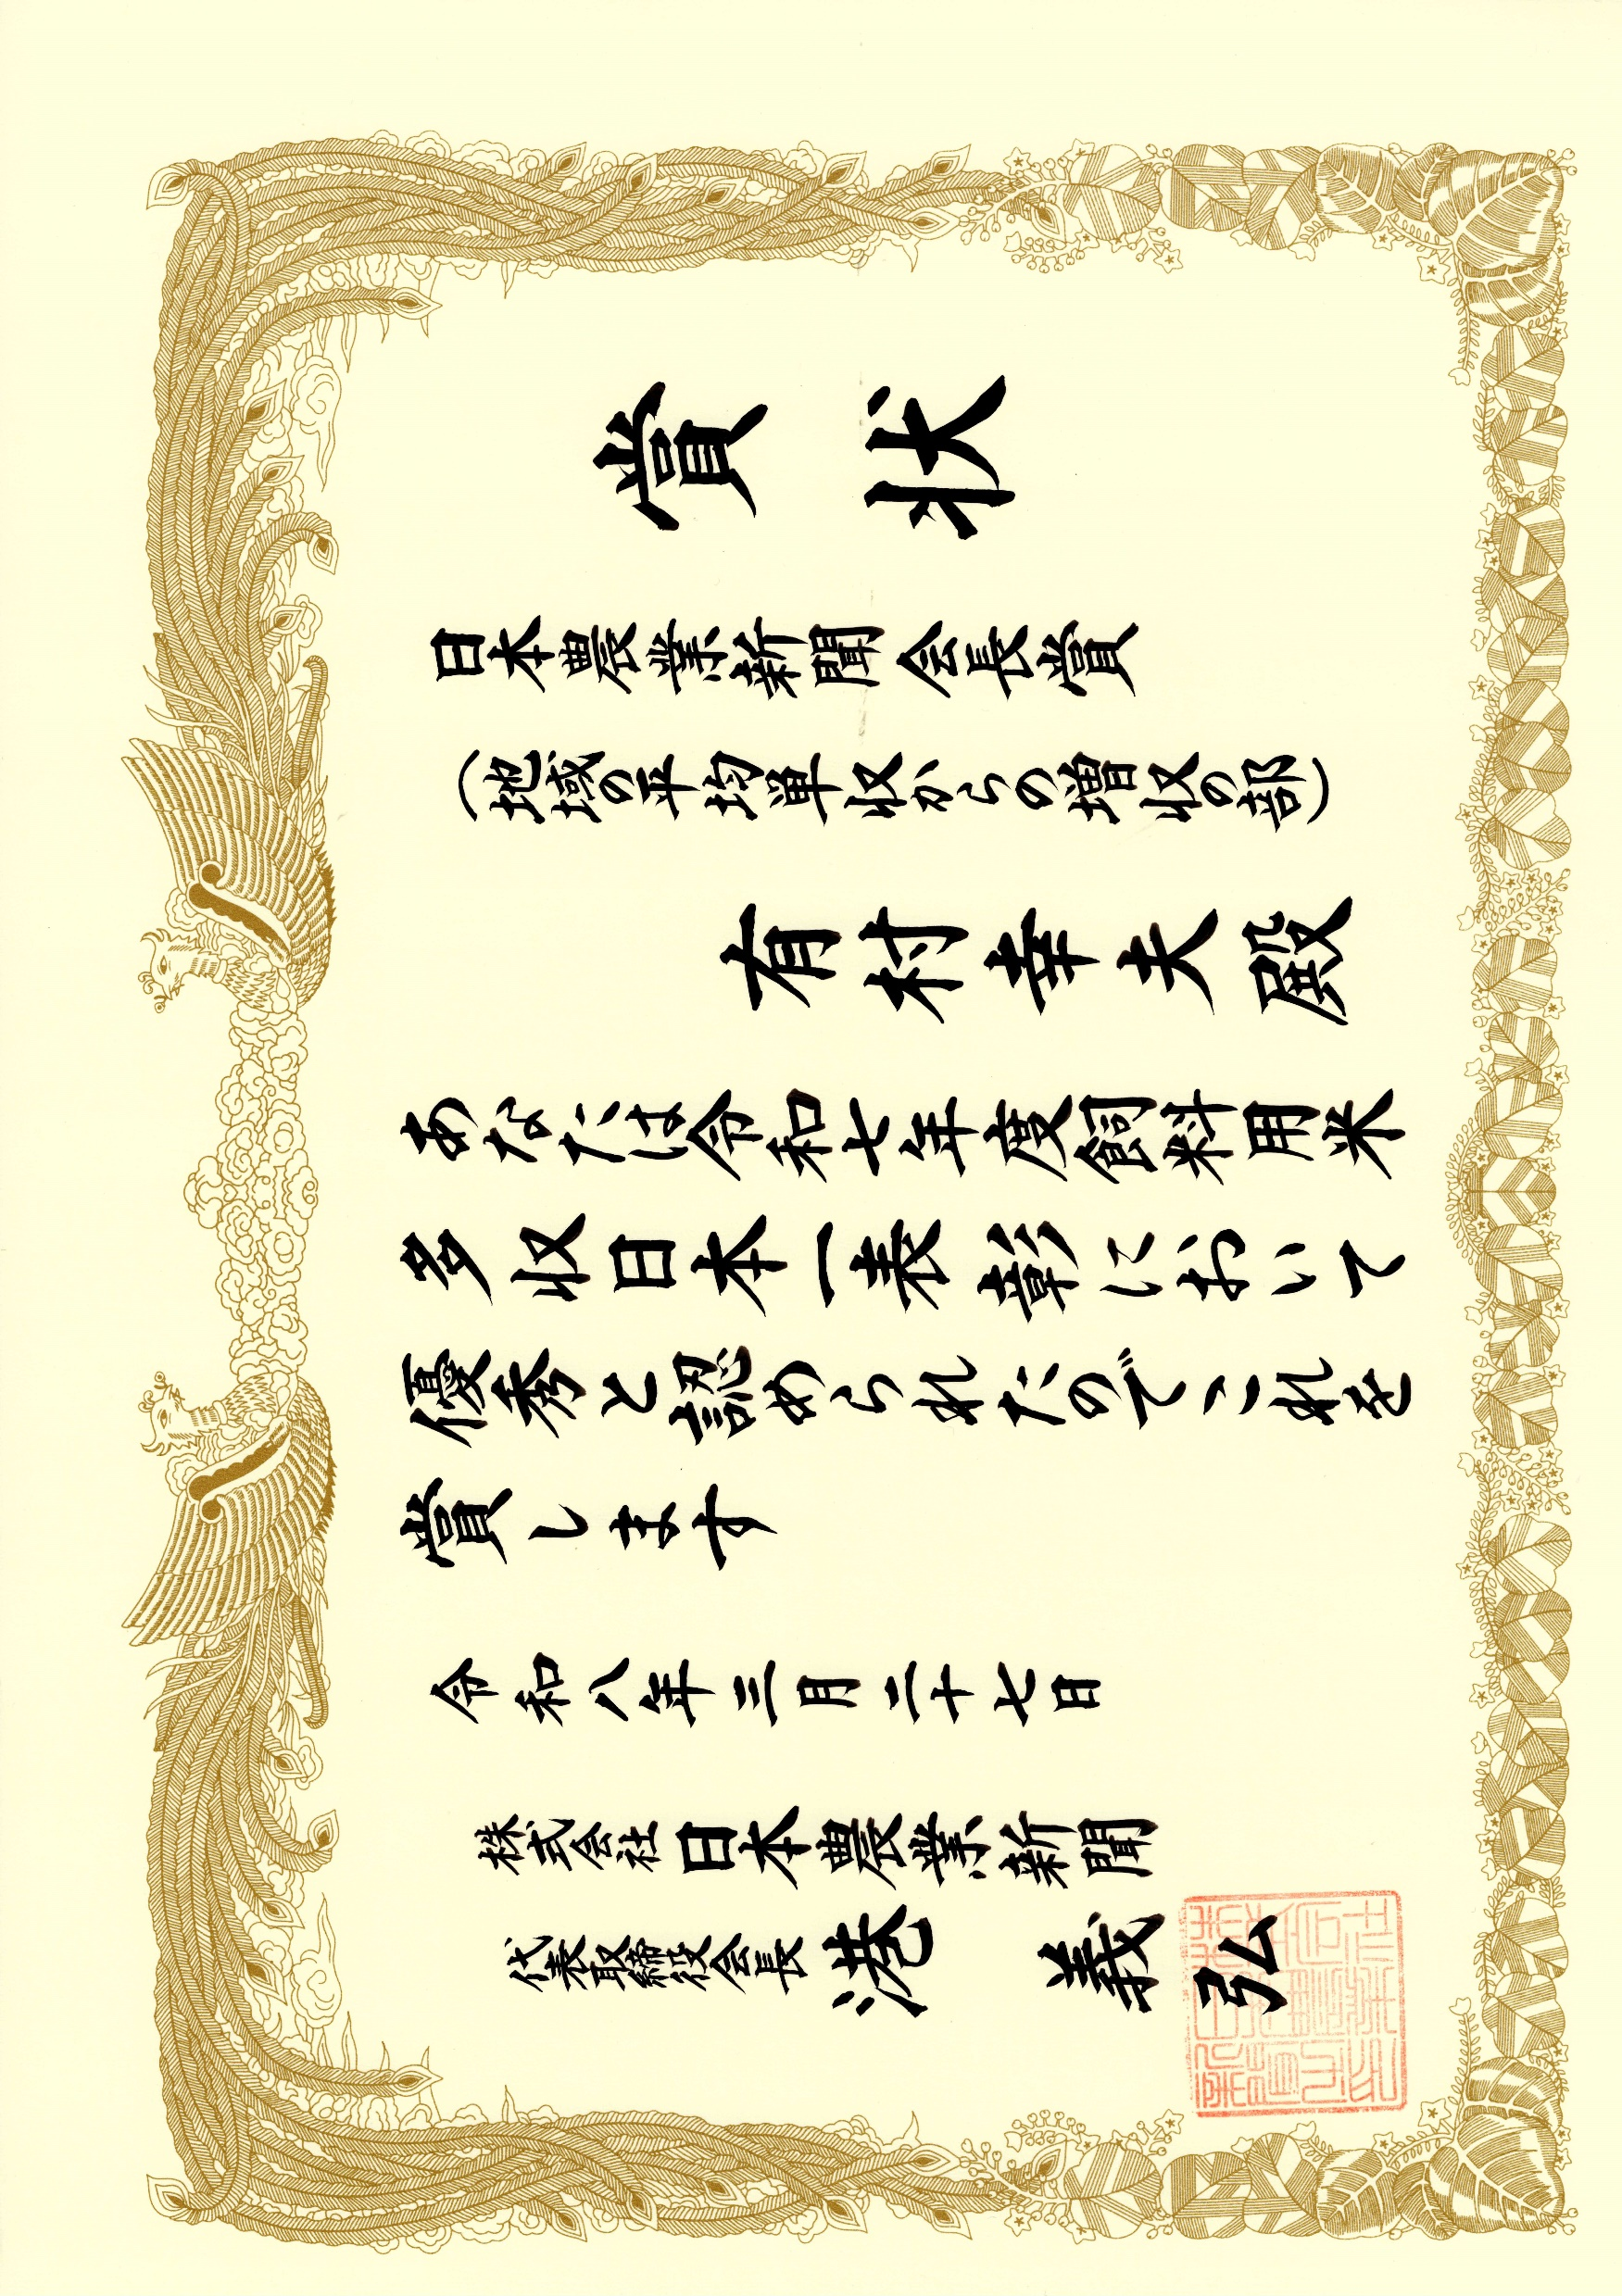 賞状
日本農業新聞会長賞
（地域の平均単収からの増収の部）
有村幸夫殿
あなたは令和七年度飼料用米
多収日本一表彰において
優秀と認められたのでこれを
賞します
令和八年三月二十七日
株式会社日本農業新聞
代表取締役会長 港 義弘